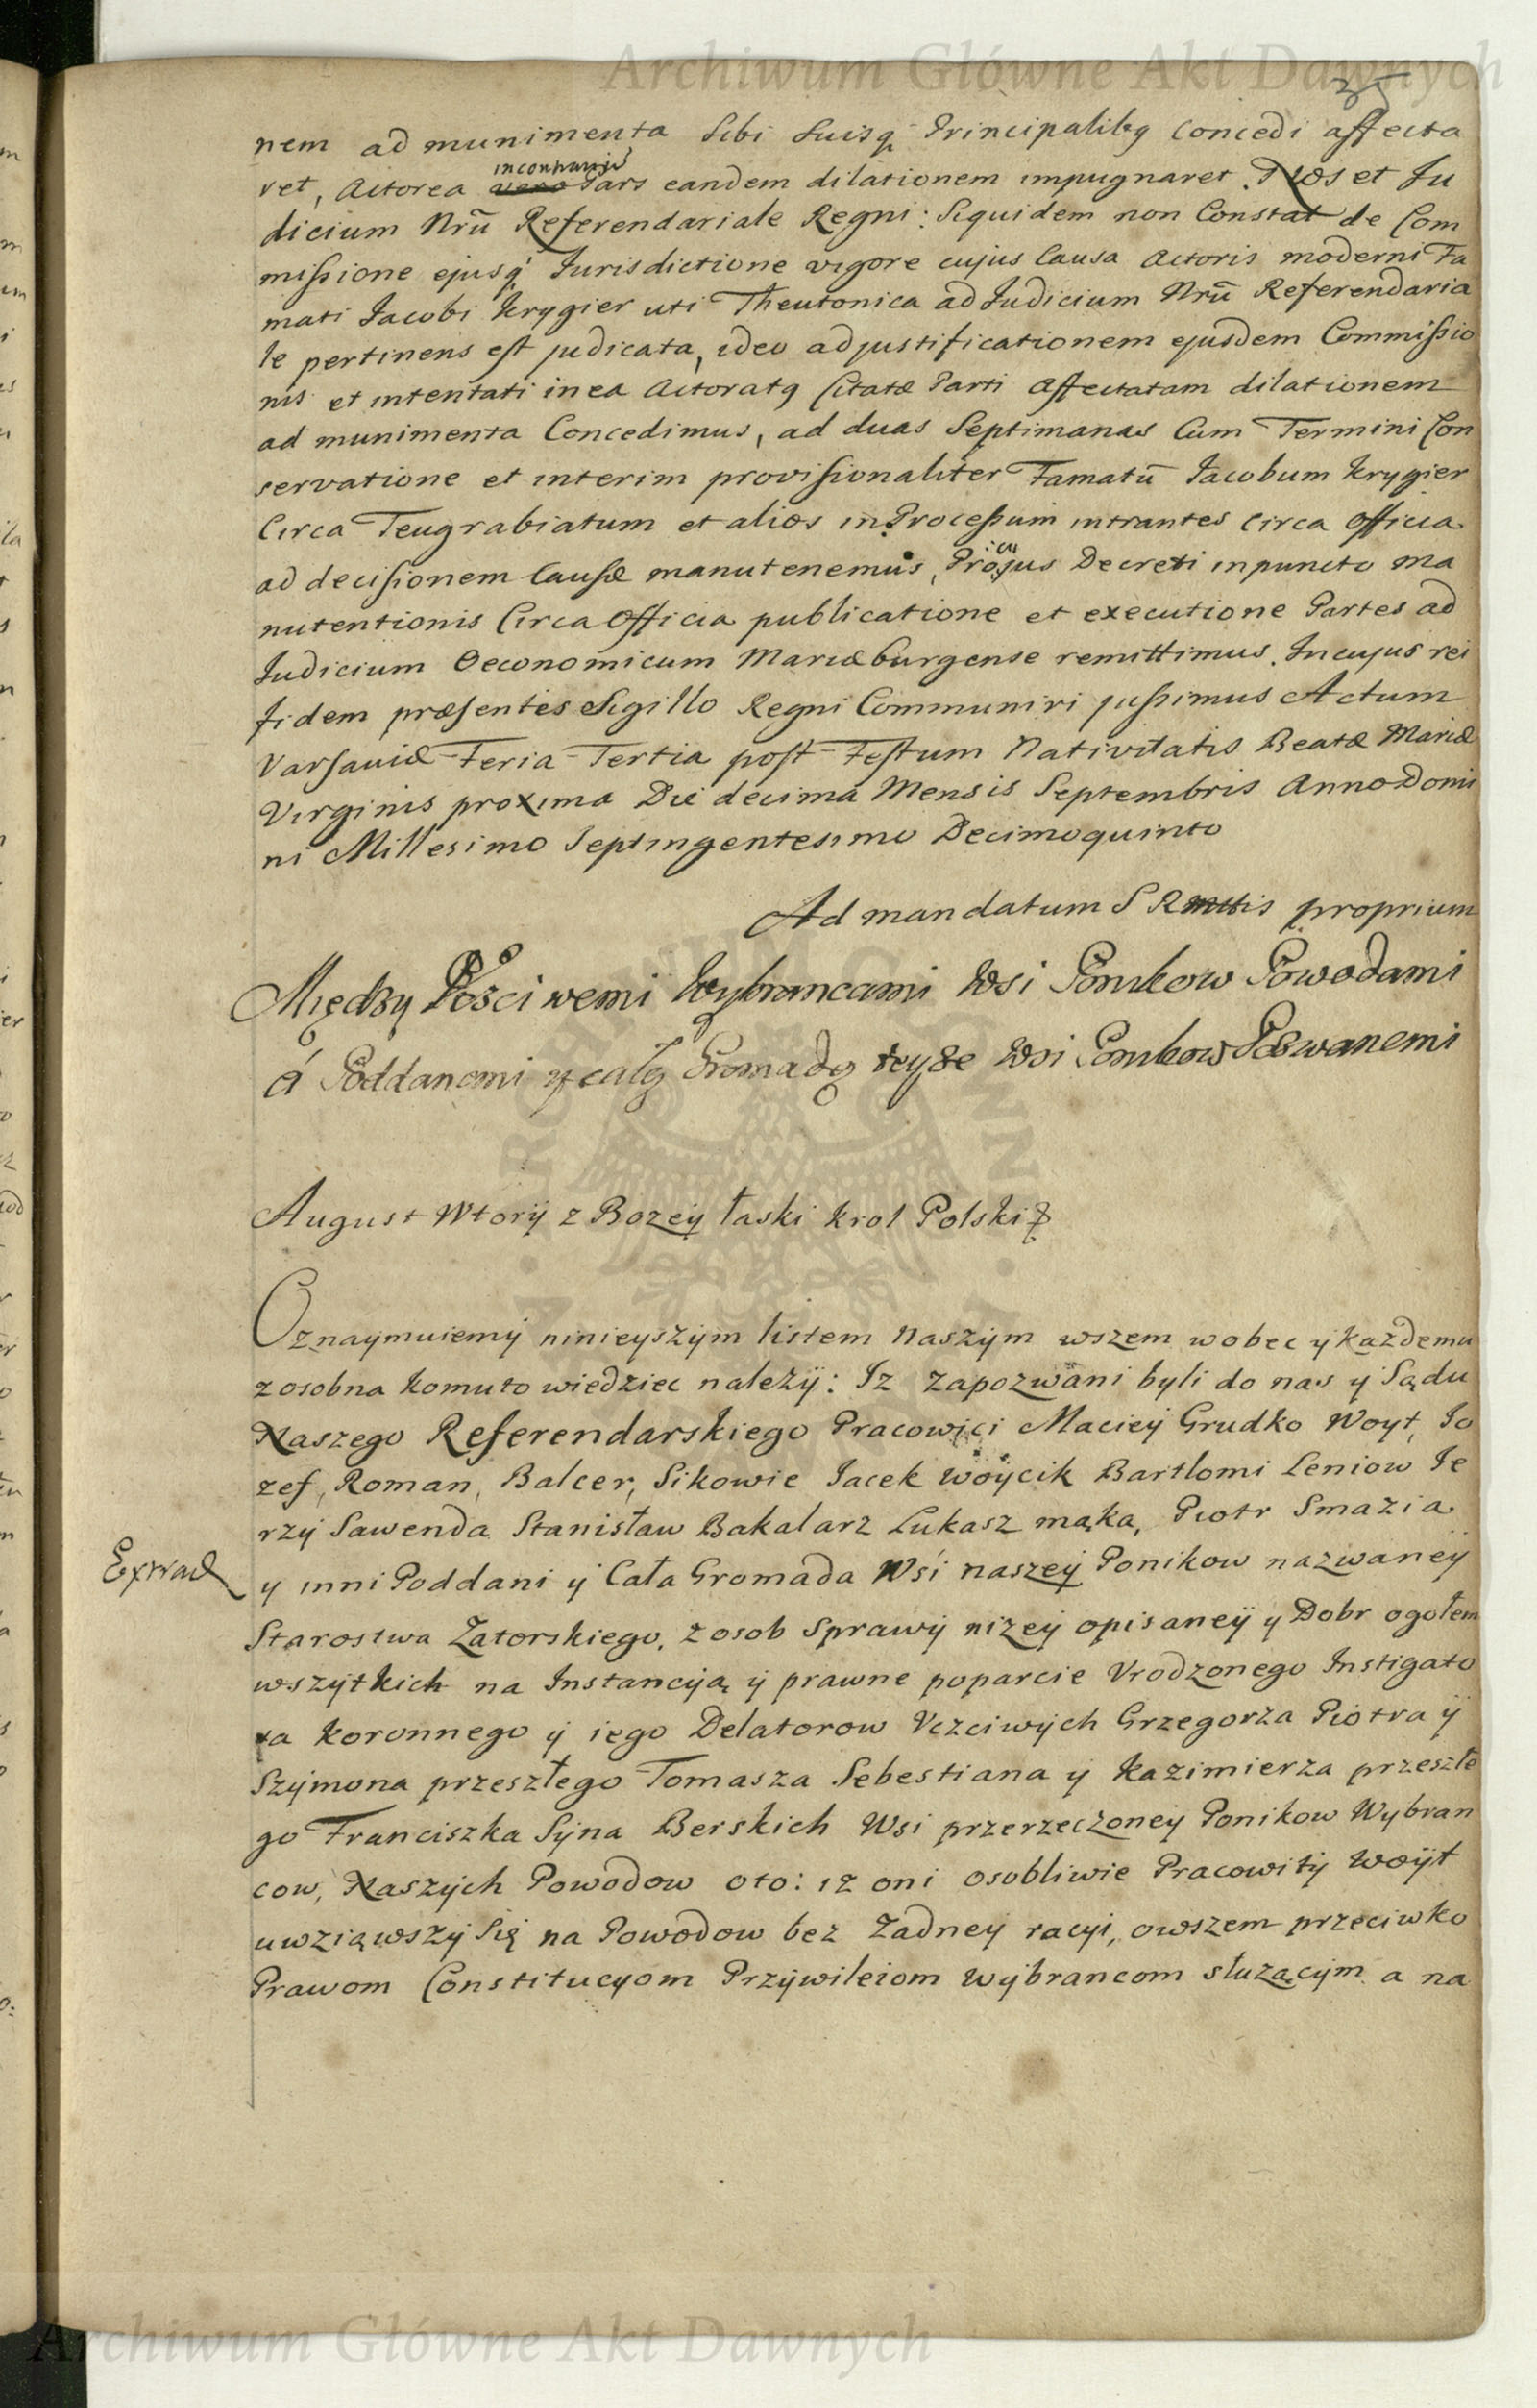 Archiwum Główne Akt Dawnych
35
nem ad munimenta Sibi Suisq Principalibq concedi affecta
ret, Actorea incontrariũ vero Pars eandem dilationem impugnaret. Nos et Ju
dicium Nrũ Referendariale Regni: Siquidem non Constat de Com
missione ejusq Jurisdictione vigore cujus Causa Actoris moderni Fa
mati Jacobi Krygier uti Theutonica ad Judicium Nrũ Referendaria
le pertinens est judicata, ideo ad justificationem ejusdem Commissio
nis et intentati in ea Actoratq Citatæ Parti affectatam dilationem
ad munimenta Concedimus, ad duas Septimanas Cum Termini Con
servatione et interim provisionaliter Famatũ Jacobum Krygier
Circa Teugrabiatum et alios in Processum intrantes circa officia
ad decisionem Causæ manutenemus, Decreti inpuncto ma
nutentionis Circa Officia publicatione et executione Partes ad
Judicium Oeconomicum Mariæburgense remittimus. In cujus rei
fidem præsentes Sigillo Regni Communiri jussimus Actum
Varsaviæ Feria Tertia post Festum Nativitatis Beatæ Mariæ
Virginis proxima Die decima Mensis Septembris Anno Domi
ni Millesimo Septingentesimo Decimoquinto
Ad mandatum S R mttis proprium
Między Poczciwemi Wybrancami Wsi Ponikow Powodami
á Poddanemi y całą Gromadą teyze Wsi Ponikow Pozwanemi
August Wtory z Bozey łaski Krol Polski &
Oznaymuiemy ninieyszym listem Naszym wszem wobec y kazdemu
zosobna komuto wiedziec nalezy: Iz zapozwani byli do nas y Sądu
Naszego Referendarskiego Pracowici Maciey Grudko Woyt, Jo
zef, Roman, Balcer, Sikowie Jacek Woycik Bartlomi Leniow Je
rzy Sawenda Stanisław Bakalarz Lukasz mąka, Piotr Smazia
y inni Poddani y Cała Gromada Wśi naszey Ponikow nazwaney
Starostwa Zatorskiego, z osob Sprawy nizey opisaney y Dobr ogołem
wszytkich na Instancyą y prawne poparcie Vrodzonego Instigato
ra Koronnego y iego Delatorow Vczciwych Grzegorza Piotra y
Szymona przeszłego Tomasza Sebestiana y Kazimierza przeszłe
go Franciszka Syna Berskich Wsi przerzeczoney Ponikow Wybran
cow, Naszych Powodow oto: iz oni osobliwie Pracowity Woyt
uwziąwszy Się na Powodow bez Zadney racyi, owszem przeciwko
Prawom Constitucyom Przywileiom Wybrancom słuzącym a na
Archiwum Główne Akt Dawnych